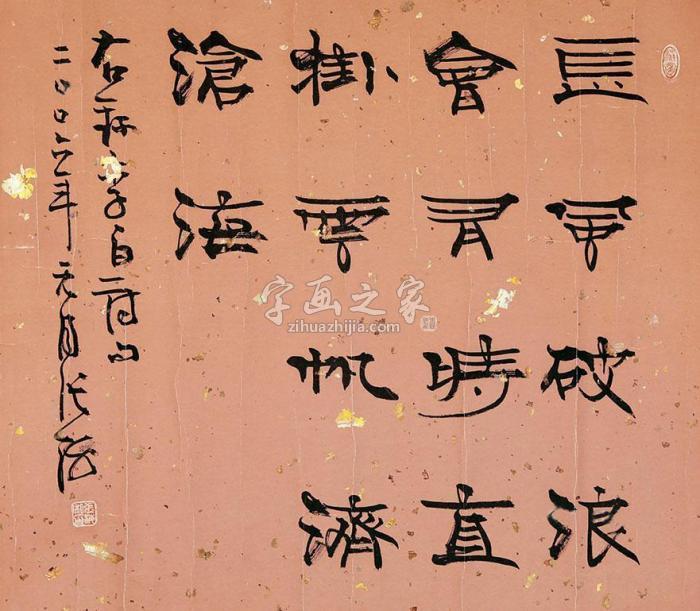 長風破浪
會有時直
掛雲帆濟
滄海
右録李白詩句
二〇〇六年元月張海
字画之家
zihuazhijia.com